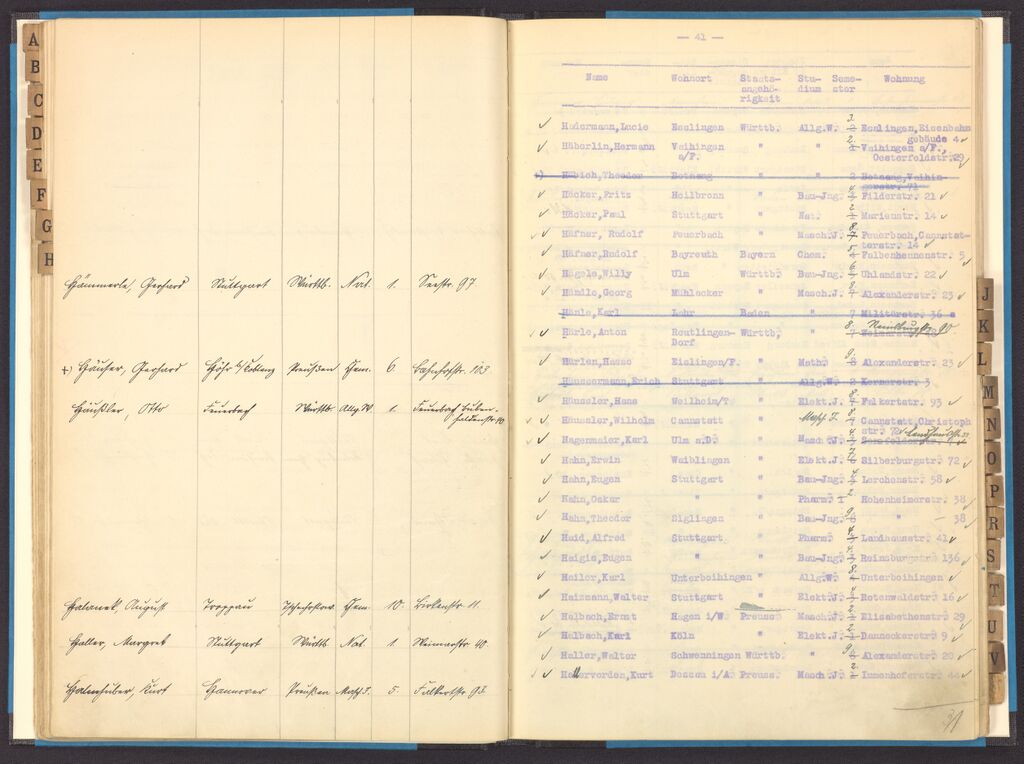 A
B
C
D
E
F
G
H
Hämmerle, Gerhard Stuttgart Württb. Nat. 1. Seestr. 97
+) Häußer, Gerhard Höhr b/Coblenz Preußen Chem. 6. Bahnhofstr. 103
Häußler, Otto Feuerbach Württb. Allg. W. 1. Feuerbach Buben-
haldenstr. 40
Halanek, August Troppau Tschechoslow. Chem. 10. Birkenstr. 11.
Haller, Margret Stuttgart Württb. Nat. 1. 40
Halmhuber, Kurt Hannover Preußen Masch. I. 5. Falkertstr. 93
— 41 —
Name Wohnort Staats- Stu- Seme- Wohnung
angehö- dium ster
rigkeit
3.
✓ Habermann, Lucie Esslingen Württb. Allg.W. 2 Esslingen, Eisenbahn
2. gebäude 4 ✓
✓ Häberlin, Hermann Vaihingen " " 1 Vaihingen a/F.,
a/F. Oesterfeldstr. 29
+) Häbich, Theodor Botnang " " 2 Botnang, Vaihin-
gerstr. 71
4
✓ Häcker, Fritz Heilbronn " Bau-Jng. 3 Filderstr. 21 ✓
2
✓ Häcker, Paul Stuttgart " Nat. 1 Marienstr. 14 ✓
8.
✓ Häfner, Rudolf Feuerbach " Masch.J. 7 Feuerbach, Cannstat-
terstr. 14 ✓
5
✓ Häfner, Rudolf Bayreuth Bayern Chem. 4 Falbenhennenstr. 5
6
✓ Hägele, Willy Ulm Württb. Bau-Jng. Uhlandstr. 22 ✓
8
✓ Händle, Georg Mühlacker " Masch.J. 7 Alexanderstr. 23 ✓
Hänle, Karl Lahr Baden " 7 Militärstr. 36 a
8.
✓ Härle, Anton Reutlingen- Württb. " 7
Dorf
9
✓ Härlen, Hasso Eislingen/F. " Math. 8 Alexanderstr. 23 ✓
Häussermann, Erich Stuttgart " Allg.W. 2 Kernerstr. 3
8
✓ Häussler, Hans Weilheim/T " Elekt.J. 7 Falkertstr. 93 ✓
✓ Häussler, Wilhelm Cannstatt " Masch I. Cannstatt, Christoph
str. 72 ✓ Landhausstr. 33
✓ Hagenmaier, Karl Ulm a.D. " Masch.J.
✓ Hahn, Erwin Waiblingen " Elekt.J. Silberburgstr. 72 ✓
✓ Hahn, Eugen Stuttgart " Bau-Jng. Lerchenstr. 58 ✓
2.
✓ Hahn, Oskar " " Pharm. 1 Hohenheimerstr. 38
9.
✓ Hahn, Theodor Siglingen " Bau-Jng. 8 " — 38
4
✓ Haid, Alfred Stuttgart " Pharm. 3 Landhausstr. 41 ✓
4
✓ Haigis, Eugen " " Bau-Jng. 3 Reinsburgstr. 136
8.
✓ Hailer, Karl Unterboihingen " Allg.W. Unterboihingen ✓
✓ Haizmann, Walter Stuttgart " Elekt.J. Rotenwaldstr. 16 ✓
2
✓ Halbach, Ernst Hagen i/W. Preuss. Masch.J. 1 Elisabethenstr. 29
2
✓ Halbach, Karl Köln " Elekt.J. 1 Danneckerstr. 9 ✓
9
✓ Haller, Walter Schwenningen Württb. " 8 Alexanderstr. 20 ✓
2.
✓ Hallervorden, Kurt Dessau i/A. Preuss. Masch.J. 1 Immenhoferstr. 44 ✓
31
J
K
L
M
N
O
P
R
S
T
U
V